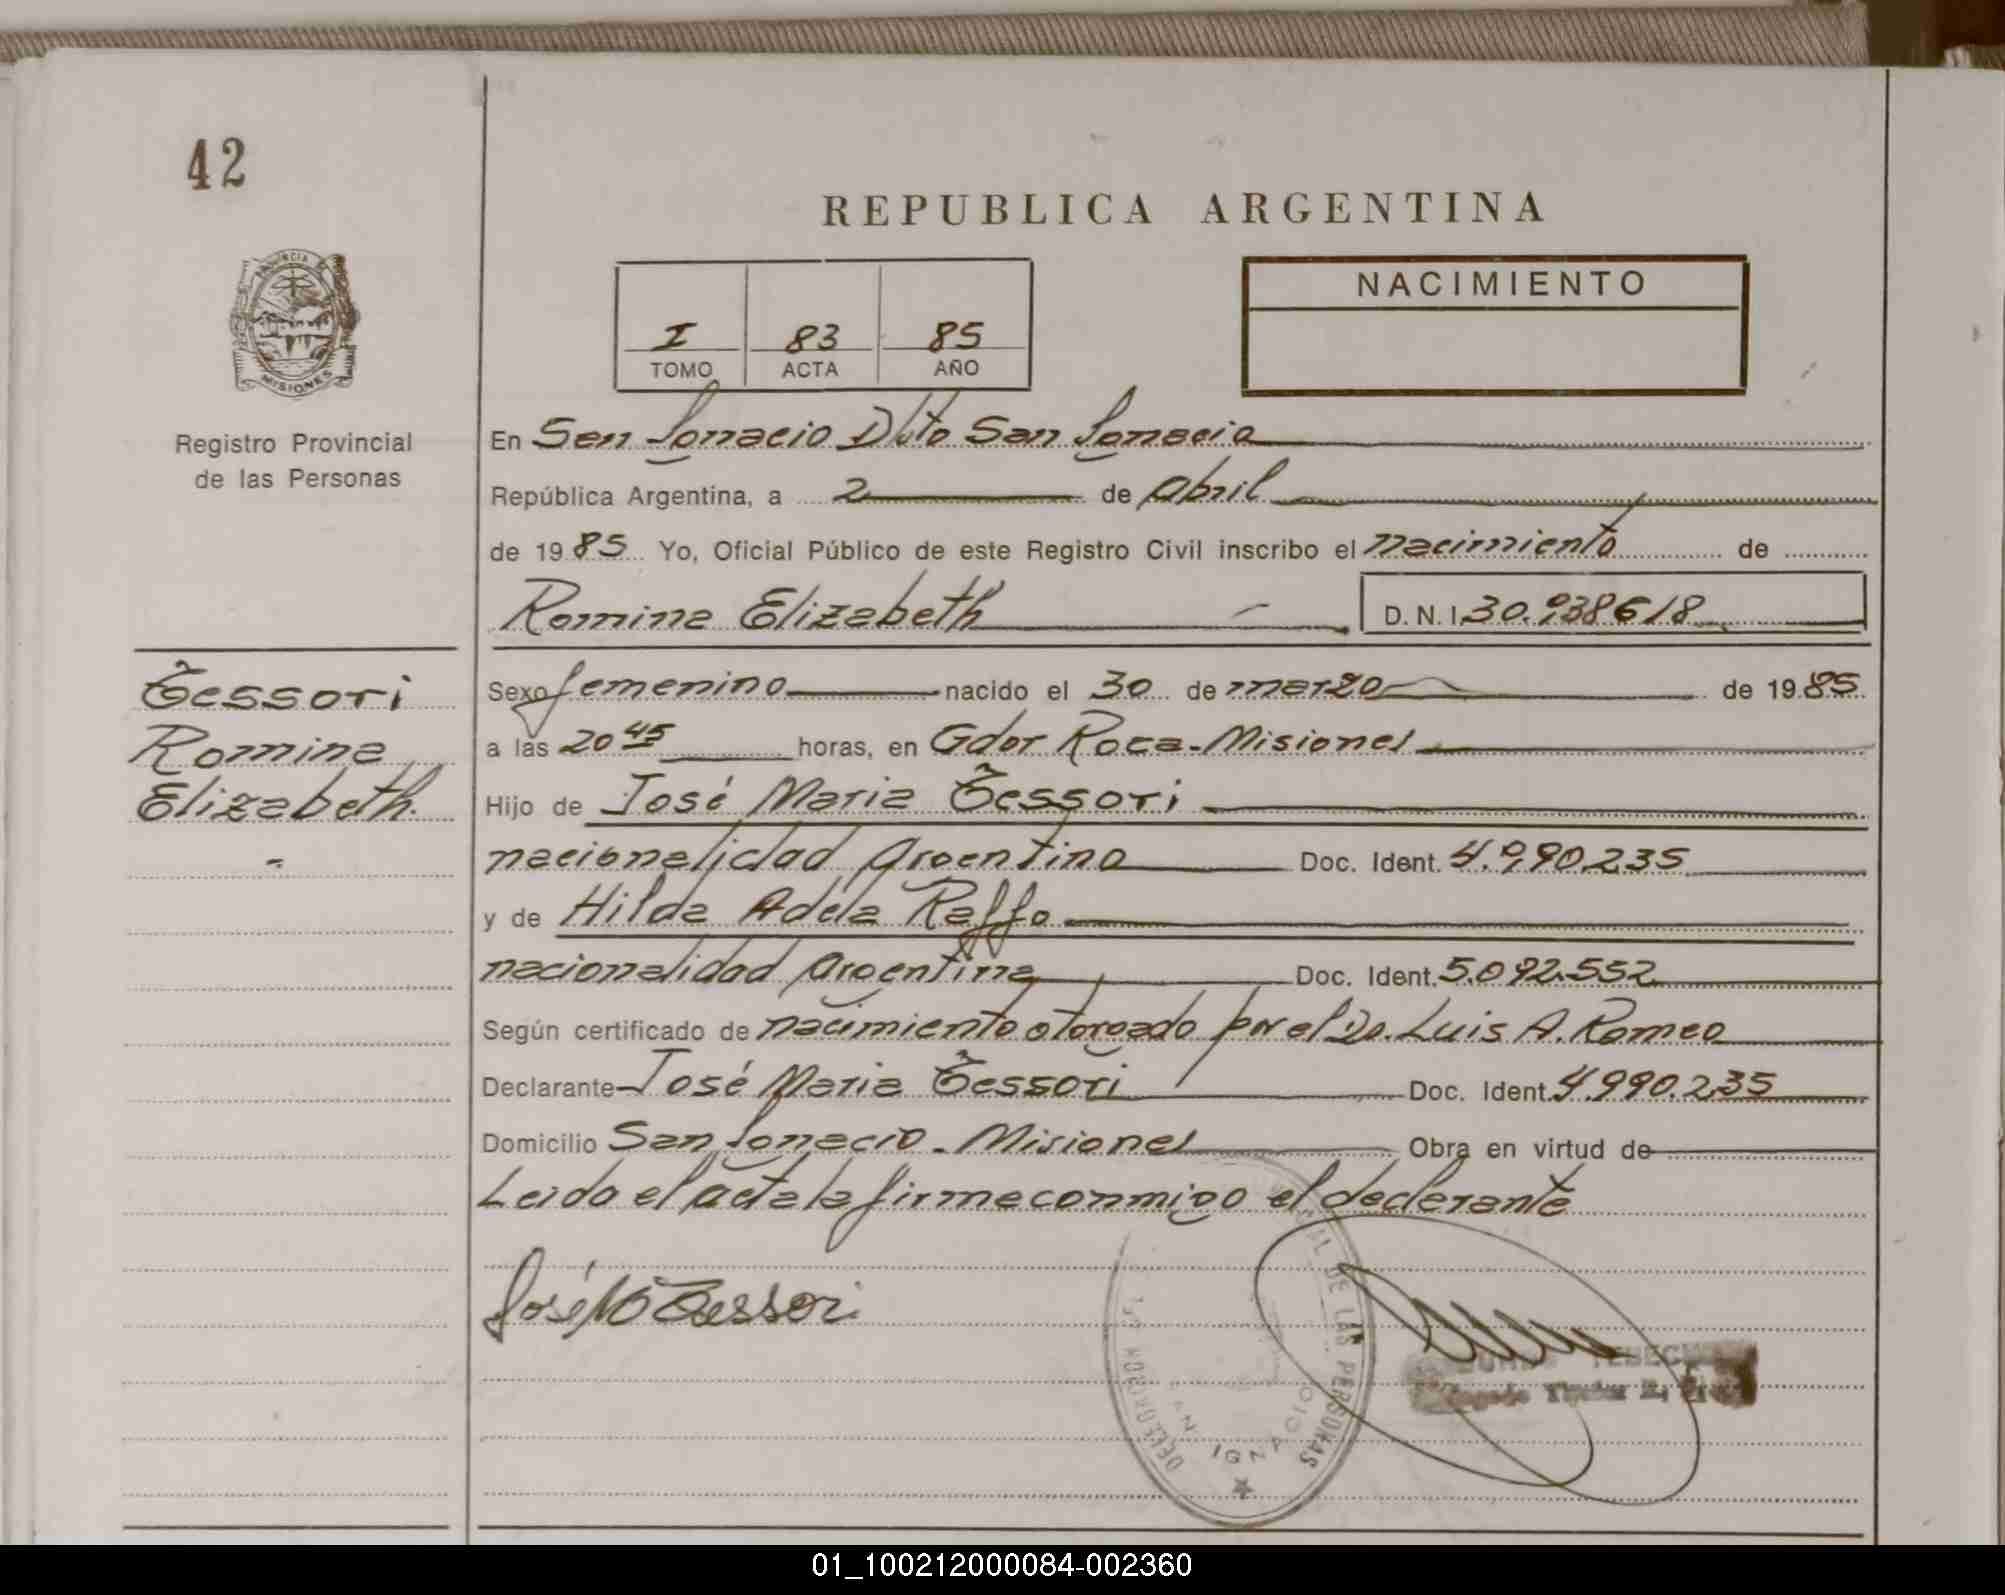 42
REPUBLICA ARGENTINA
PROVINCIA DE
MISIONES
Registro Provincial
de las Personas
I 83 85
TOMO ACTA AÑO
NACIMIENTO
En San Ignacio Dpto San Ignacio
República Argentina, a 2 de abril
de 1985 Yo, Oficial Público de este Registro Civil inscribo el nacimiento de
Romina Elizabeth D.N.I. 30.938618
Tessori
Romina
Elizabeth.
Sexo femenino nacido el 30 de marzo de 1985
a las 20 45 horas, en Gdor Roca-Misiones
Hijo de José Maria Tessori
nacionalidad Argentina Doc. Ident. 4.990.235
y de Hilda Adela Raffo
nacionalidad Argentina Doc. Ident. 5.092.552
Según certificado de nacimiento otorgado por el Dr. Luis A. Romeo
Declarante José Maria Tessori Doc. Ident. 4.990.235
Domicilio San Ignacio - Misiones Obra en virtud de
Leido el acta la firma conmigo el declarante
José M Tessori
DE LAS PERSONAS
SAN IGNACIO
01_100212000084-002360